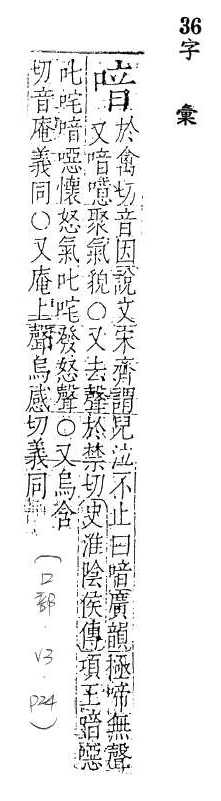 36
字彙
喑
於禽切音因說文宋齊謂兒泣不止曰喑廣韻極啼無聲
又喑噫聚氣貌○又去聲於禁切史淮陰侯傳項王喑惡
叱咤喑惡懷怒氣叱咤發怒聲○又烏含
切音庵義同○又庵上聲烏感切義同
(口部.V3.P24)